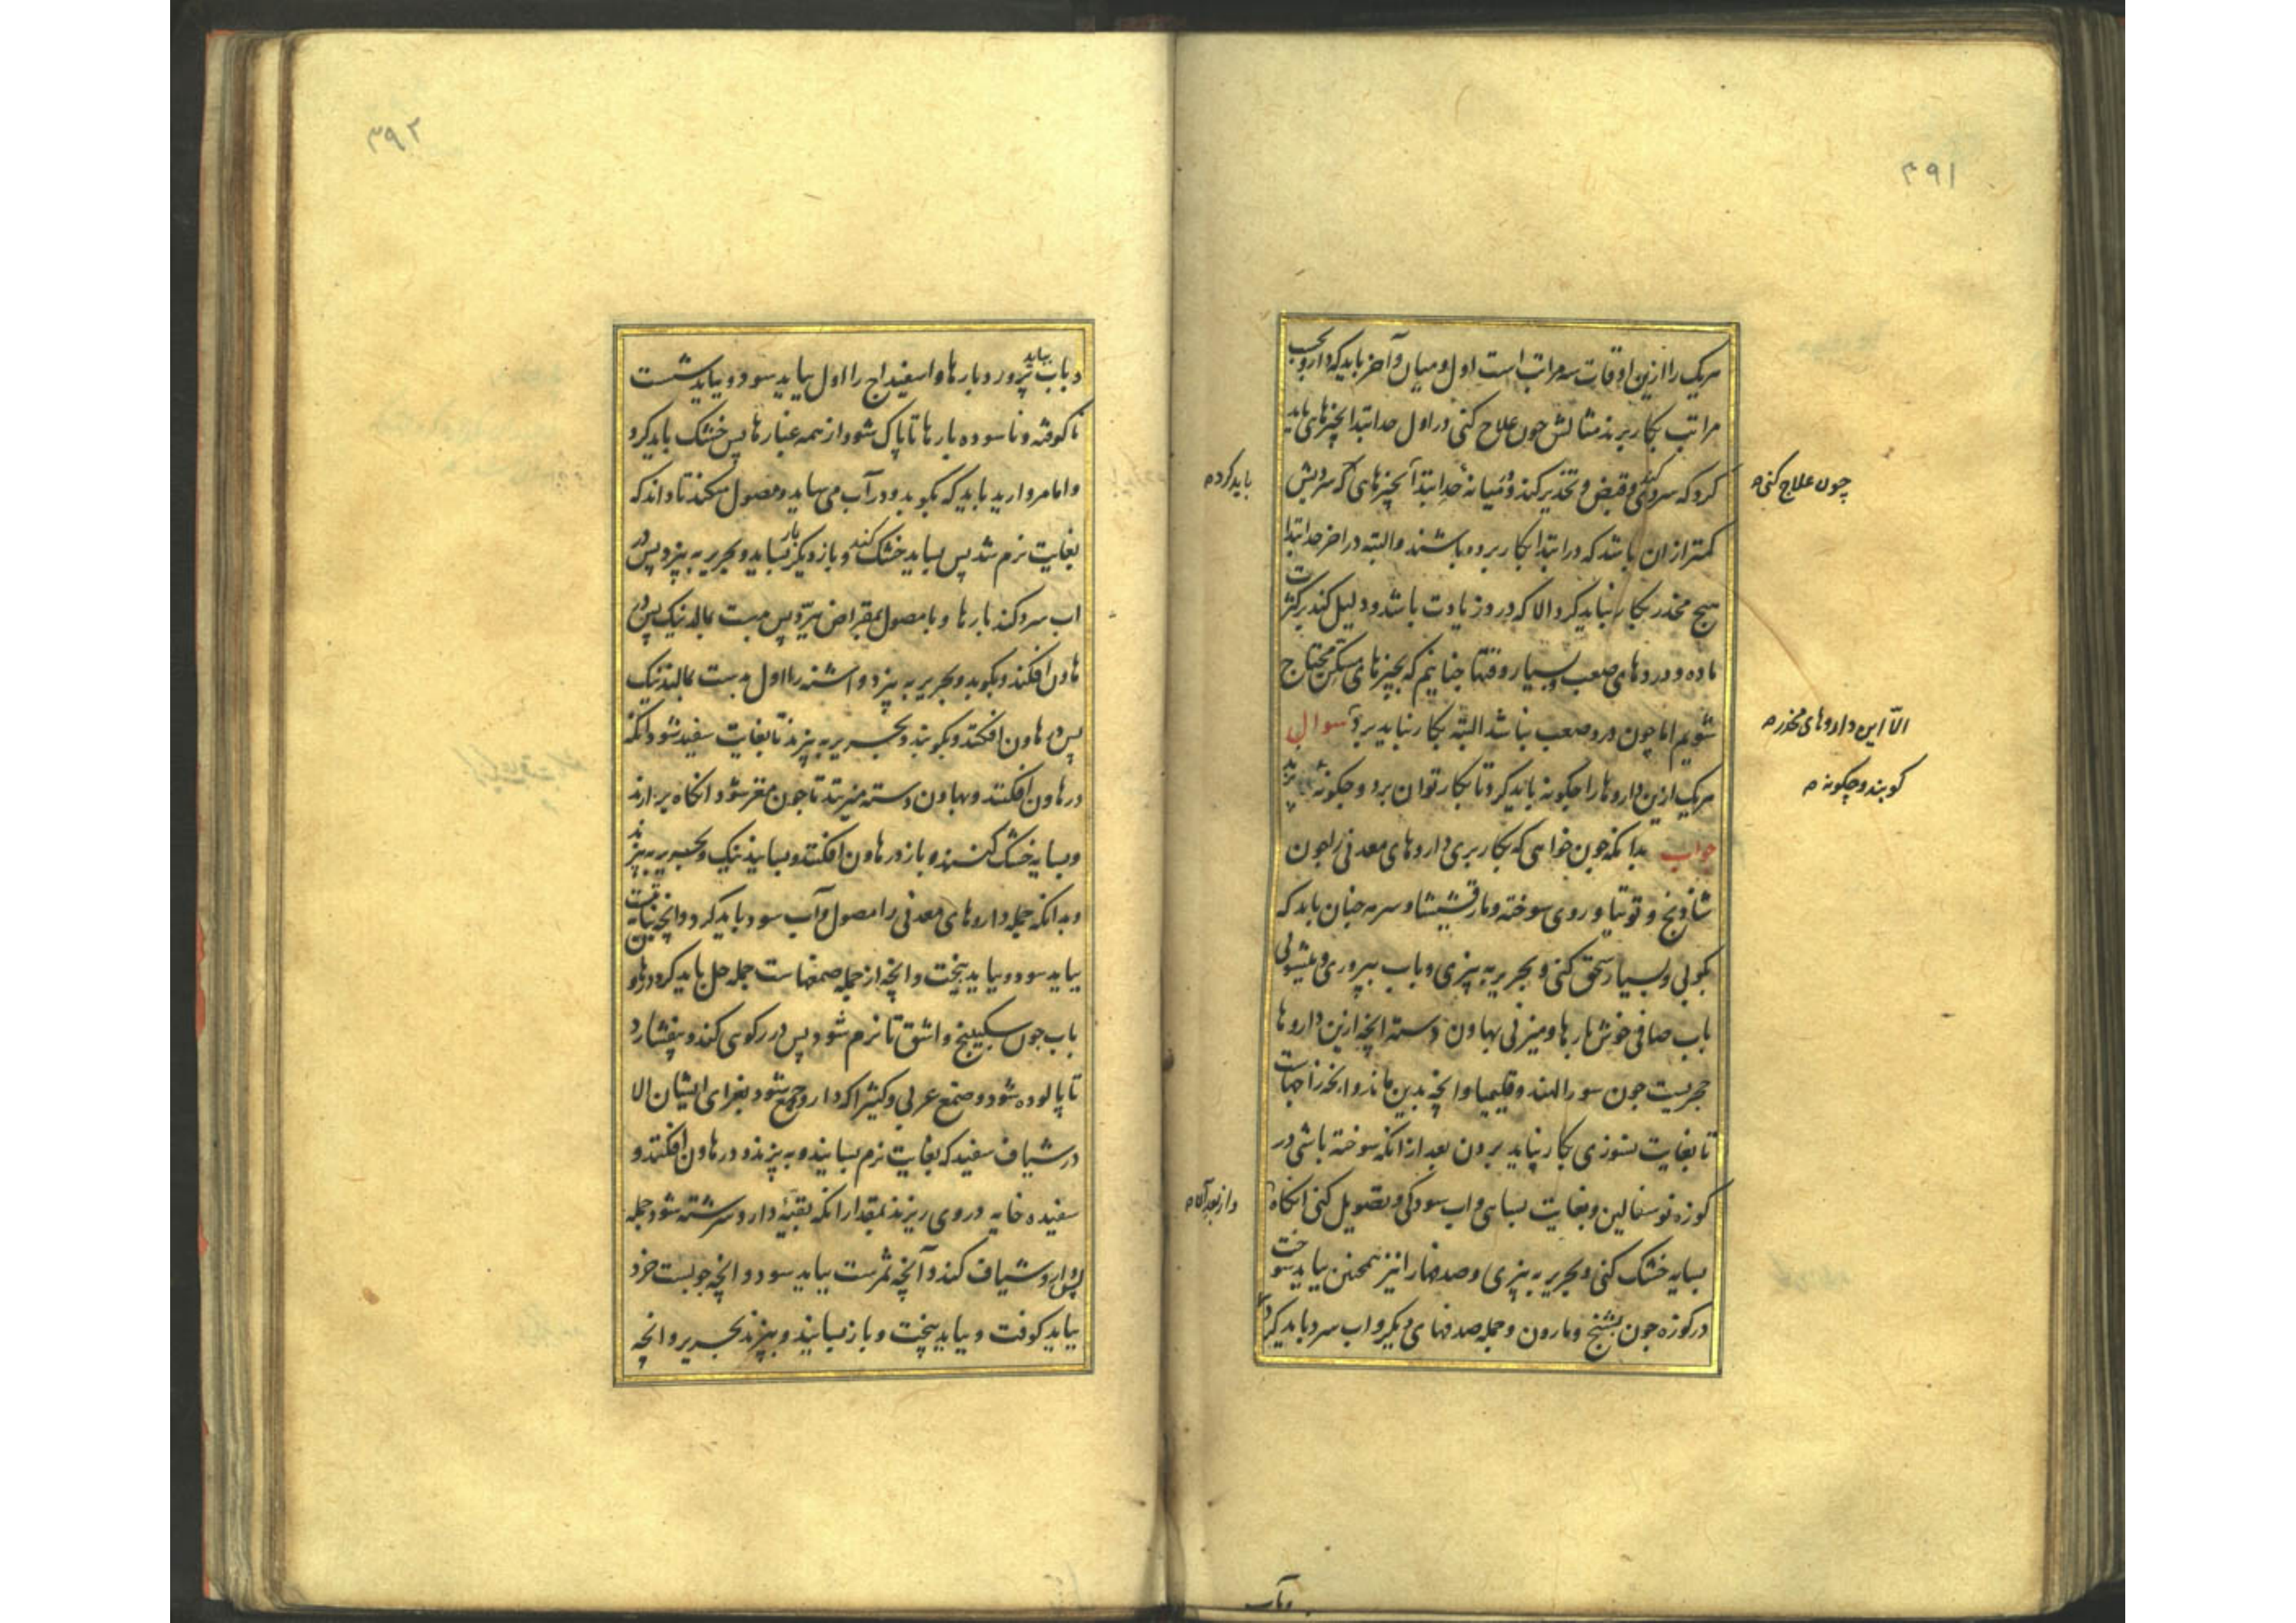 ۳۹۱
هریک را ازین اوقات سه مراتب است اول و میان و آخر باید که دارو بحسب
مراتب بکار برند مثالش چون علاج کنی در اول حد ابتدا بچیزهای باید
کرد که سردی کند و قبض و تخدیر کند و میانهٔ حد ابتدا آنچیزهای که سردیش
چون علاج کنی ه
باید کرده
کمتر از ان باشد که در ابتدا بکار برده باشند و البته در اخر حد ابتدا
هیچ مخدر بکار نباید کرد الا که درد زیادت باشد و دلیل کند بر کثرت
ماده و دردهای صعب و بسیار وقتها چنانیم که بچیزهای مسکن محتاج
شویم اما چون درد صعب نباشد البته بکار نباید برد سوال
الّا این داروهای مخدره
هریک ازین داروها را چگونه باید کرد تا بکار توان برد و چگونه پزند
کوبند و چگونه ه
جواب بدانکه چون خواهی که بکار بری داروهای معدنی را چون
شادنج و توتیا و روی سوخته و مارقشیشا و سرمه چنان باید که
بکوبی و بسیار سحق کنی و بحریر به بیزی و باب بپروری و بشویی
باب صافی خوش بارها و میزنی بهاون دسته انچه ازین داروها
حجریست چون سورالهند و قلیمیا و انچه بدین ماند و انچه زاجهاست
تا بغایت نسوزی بکار نیاید بردن بعد از انکه سوخته باشی در
کوزه نو سفالین و بغایت بسایی و اب سود کنی و تصویل کنی انکاه
و از بعد آن ه
بسایه خشک کنی و بحریر به بیزی و صدفها را نیز همچنین بباید سوخت
در کوزه چون بشنج و مارون و جمله صدفهای دیگر و اب سرد باید کرد
وبآب
۳۹۲
و باب بباید پرورد بارها و اسفیداج را اول بباید سود و بباید شست
ناکوفته و ناسوده بارها تا پاک شود از همه غبارها پس خشک باید کرد
و اما مروارید باید که بکوبد و در آب می ساید و مصول میکند تا داند که
بغایت نرم شد پس بساید خشک کند و باز دیگر بار بساید و بحریر به بیزد پس در
اب سرد کند بارها و بامصول بمقراض ببرّد پس بدست بمالد نیک پس در
هاون افکند و بکوبد و بحریر به بیزد و اشنه را اول بدست بمالند نیک
پس در هاون افکنند و بکوبند و بحریر به بیزند تا بغایت سفید شود انکه
در هاون افکنند و بهاون دسته میزنند تا چون مغز شود انکاه بر ارند
و بسایه خشک کنند و باز در هاون افکنند و بسایند نیک و بحریر به بیزند
و بدانکه جمله داروهای معدنی را مصول و آب سود باید کرد و انچه نباتیست
بباید سود و بباید بیخت و انچه از جمله صمغهاست جمله حل باید کرد در هاون
باب چون سکبینج و اشق تا نرم شود پس در رکوی کند و بیفشارد
تا پالوده شود و صمغ عربی و کثیرا که دارو جمع شود بغرای ایشان الا
در شیاف سفید که بغایت نرم بسایند و به بیزند و در هاون افکنند و
سفیده خایه در وی ریزند بمقدار انکه بقیّهٔ دارو سرشته شود جمله
پس دارو شیاف کند و آنچه ثمرست بباید سود و انچه چوبست خرد
بباید کوفت و بباید بیخت و باز بسایند و ببیزند بحریر و انچه